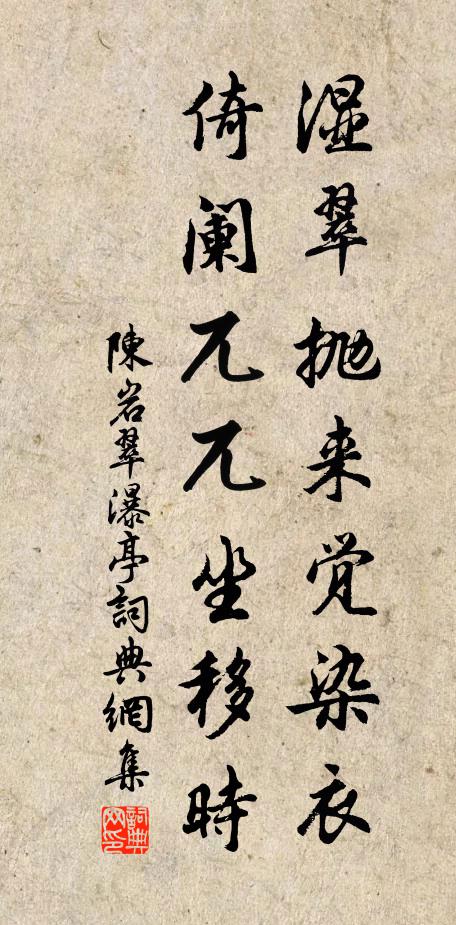 湿翠抛来觉染衣
倚阑兀兀坐移時
陳岩翠瀑亭詞典網集
詞典網印